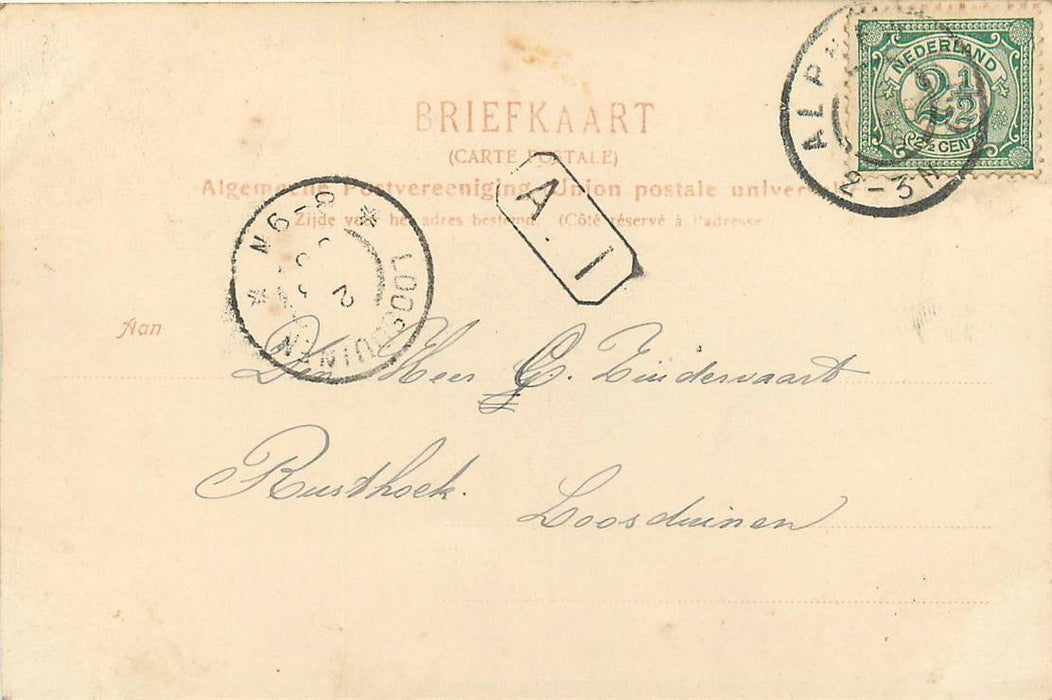 BRIEFKAART
(CARTE POSTALE)
Algemeene Postvereeniging Union postale universelle
Zijde voor het adres bestemd. (Côté réservé à l'adresse
NEDERLAND
2½
2½ CENT
ALPH
2-3N
A. I
8-9N
2
LOOSDUINEN
Aan
Den Heer G. Zindervaart
Rusthoek. Loosduinen